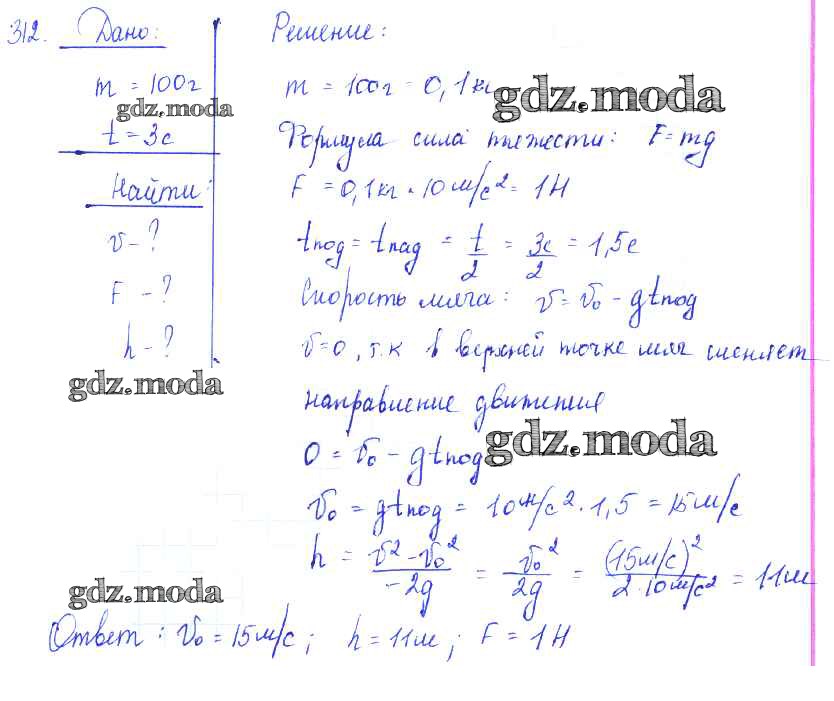 312. Дано:
m = 100г
gdz.moda
t = 3с
Найти:
v - ?
F - ?
h - ?
gdz.moda
Решение:
m = 100г = 0,1кг
gdz.moda
Формула сила тяжести: F = mg
F = 0,1кг · 10м/с² = 1Н
tпод = tпад = t/2 = 3с/2 = 1,5с
Скорость мяча: v = v₀ - gtпод
v = 0, т.к в верхней точке мяч меняет
направление движения
gdz.moda
0 = v₀ - gtпод
v₀ = gtпод = 10м/с² · 1,5 = 15м/с
h = v² - v₀² / -2g = v₀² / 2g = (15м/с)² / 2·10м/с² = 11м
gdz.moda
Ответ: v₀ = 15м/с; h = 11м; F = 1Н